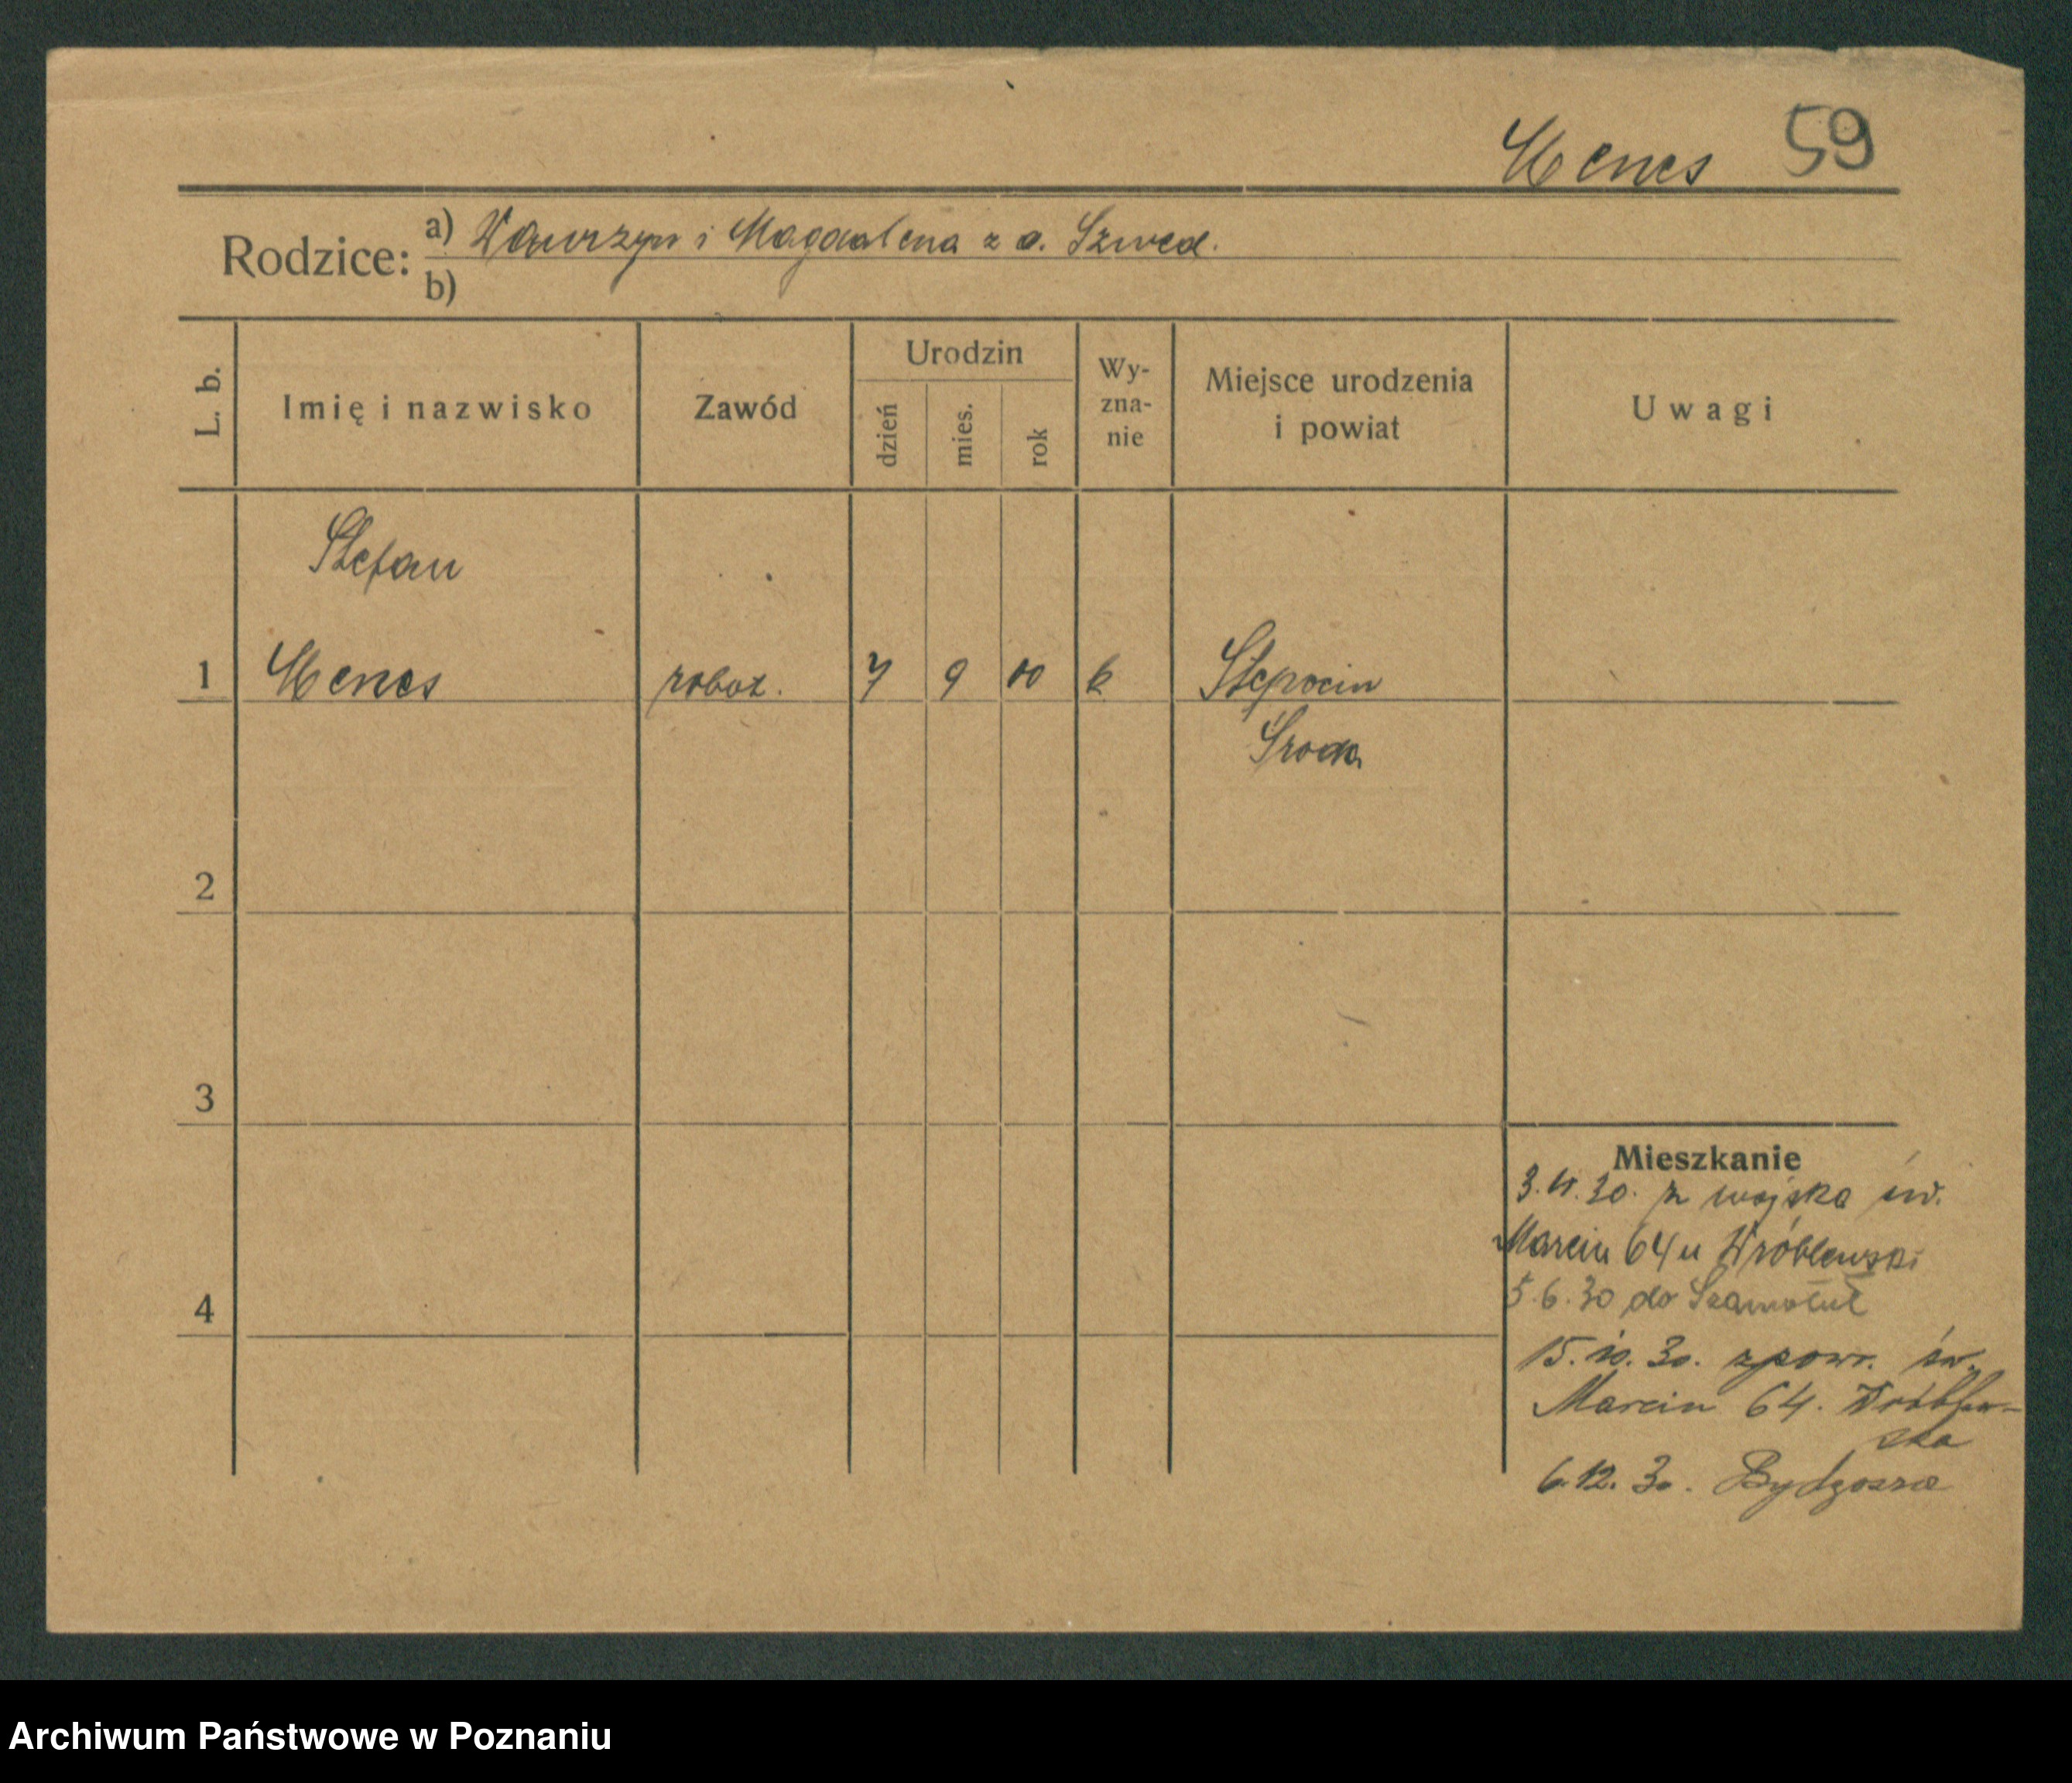 Menes 59
Rodzice: a) Wawrzyn i Magdalena z d. Szwed.
b)
L. b. Imię i nazwisko Zawód Urodzin dzień mies. rok Wy-zna-nie Miejsce urodzenia i powiat Uwagi
Stefan
1 Menes robot. 7 9 00 k Stępocin
Środa
2
3
Mieszkanie
3.4.30. z wojska św.
Marcin 64 u Wróblewski
5.6.30 do Szamotuł
4
15.10.30. zpowr. św.
Marcin 64. Wróblew-
ska
6.12.30. Bydgoszcz
Archiwum Państwowe w Poznaniu